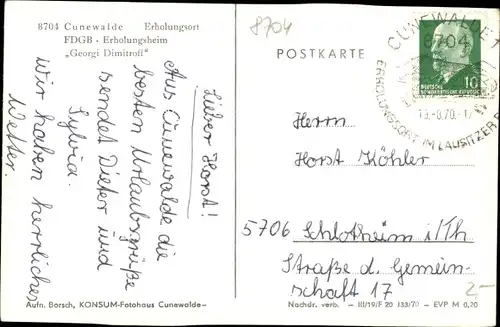 8704 Cunewalde Erholungsort
FDGB - Erholungsheim
„Georgi Dimitroff"
Lieber Horst!
Aus Cunewalde die
besten Urlaubsgrüße
sendet Dieter und
Sylvia.
Wir haben herrliches
Wetter.
Aufn. Borsch, KONSUM-Fotohaus Cunewalde-
8704
POSTKARTE
CUNEWALDE
8704
ERHOLUNGSORT IM LAUSITZER
10
Herrn
Horst Köhler
5706 Schlotheim i/Th
Straße d. Gemein-
schaft 17
2,-
Nachdr. verb. - III/19/F 20 133/70 - EVP M 0,20